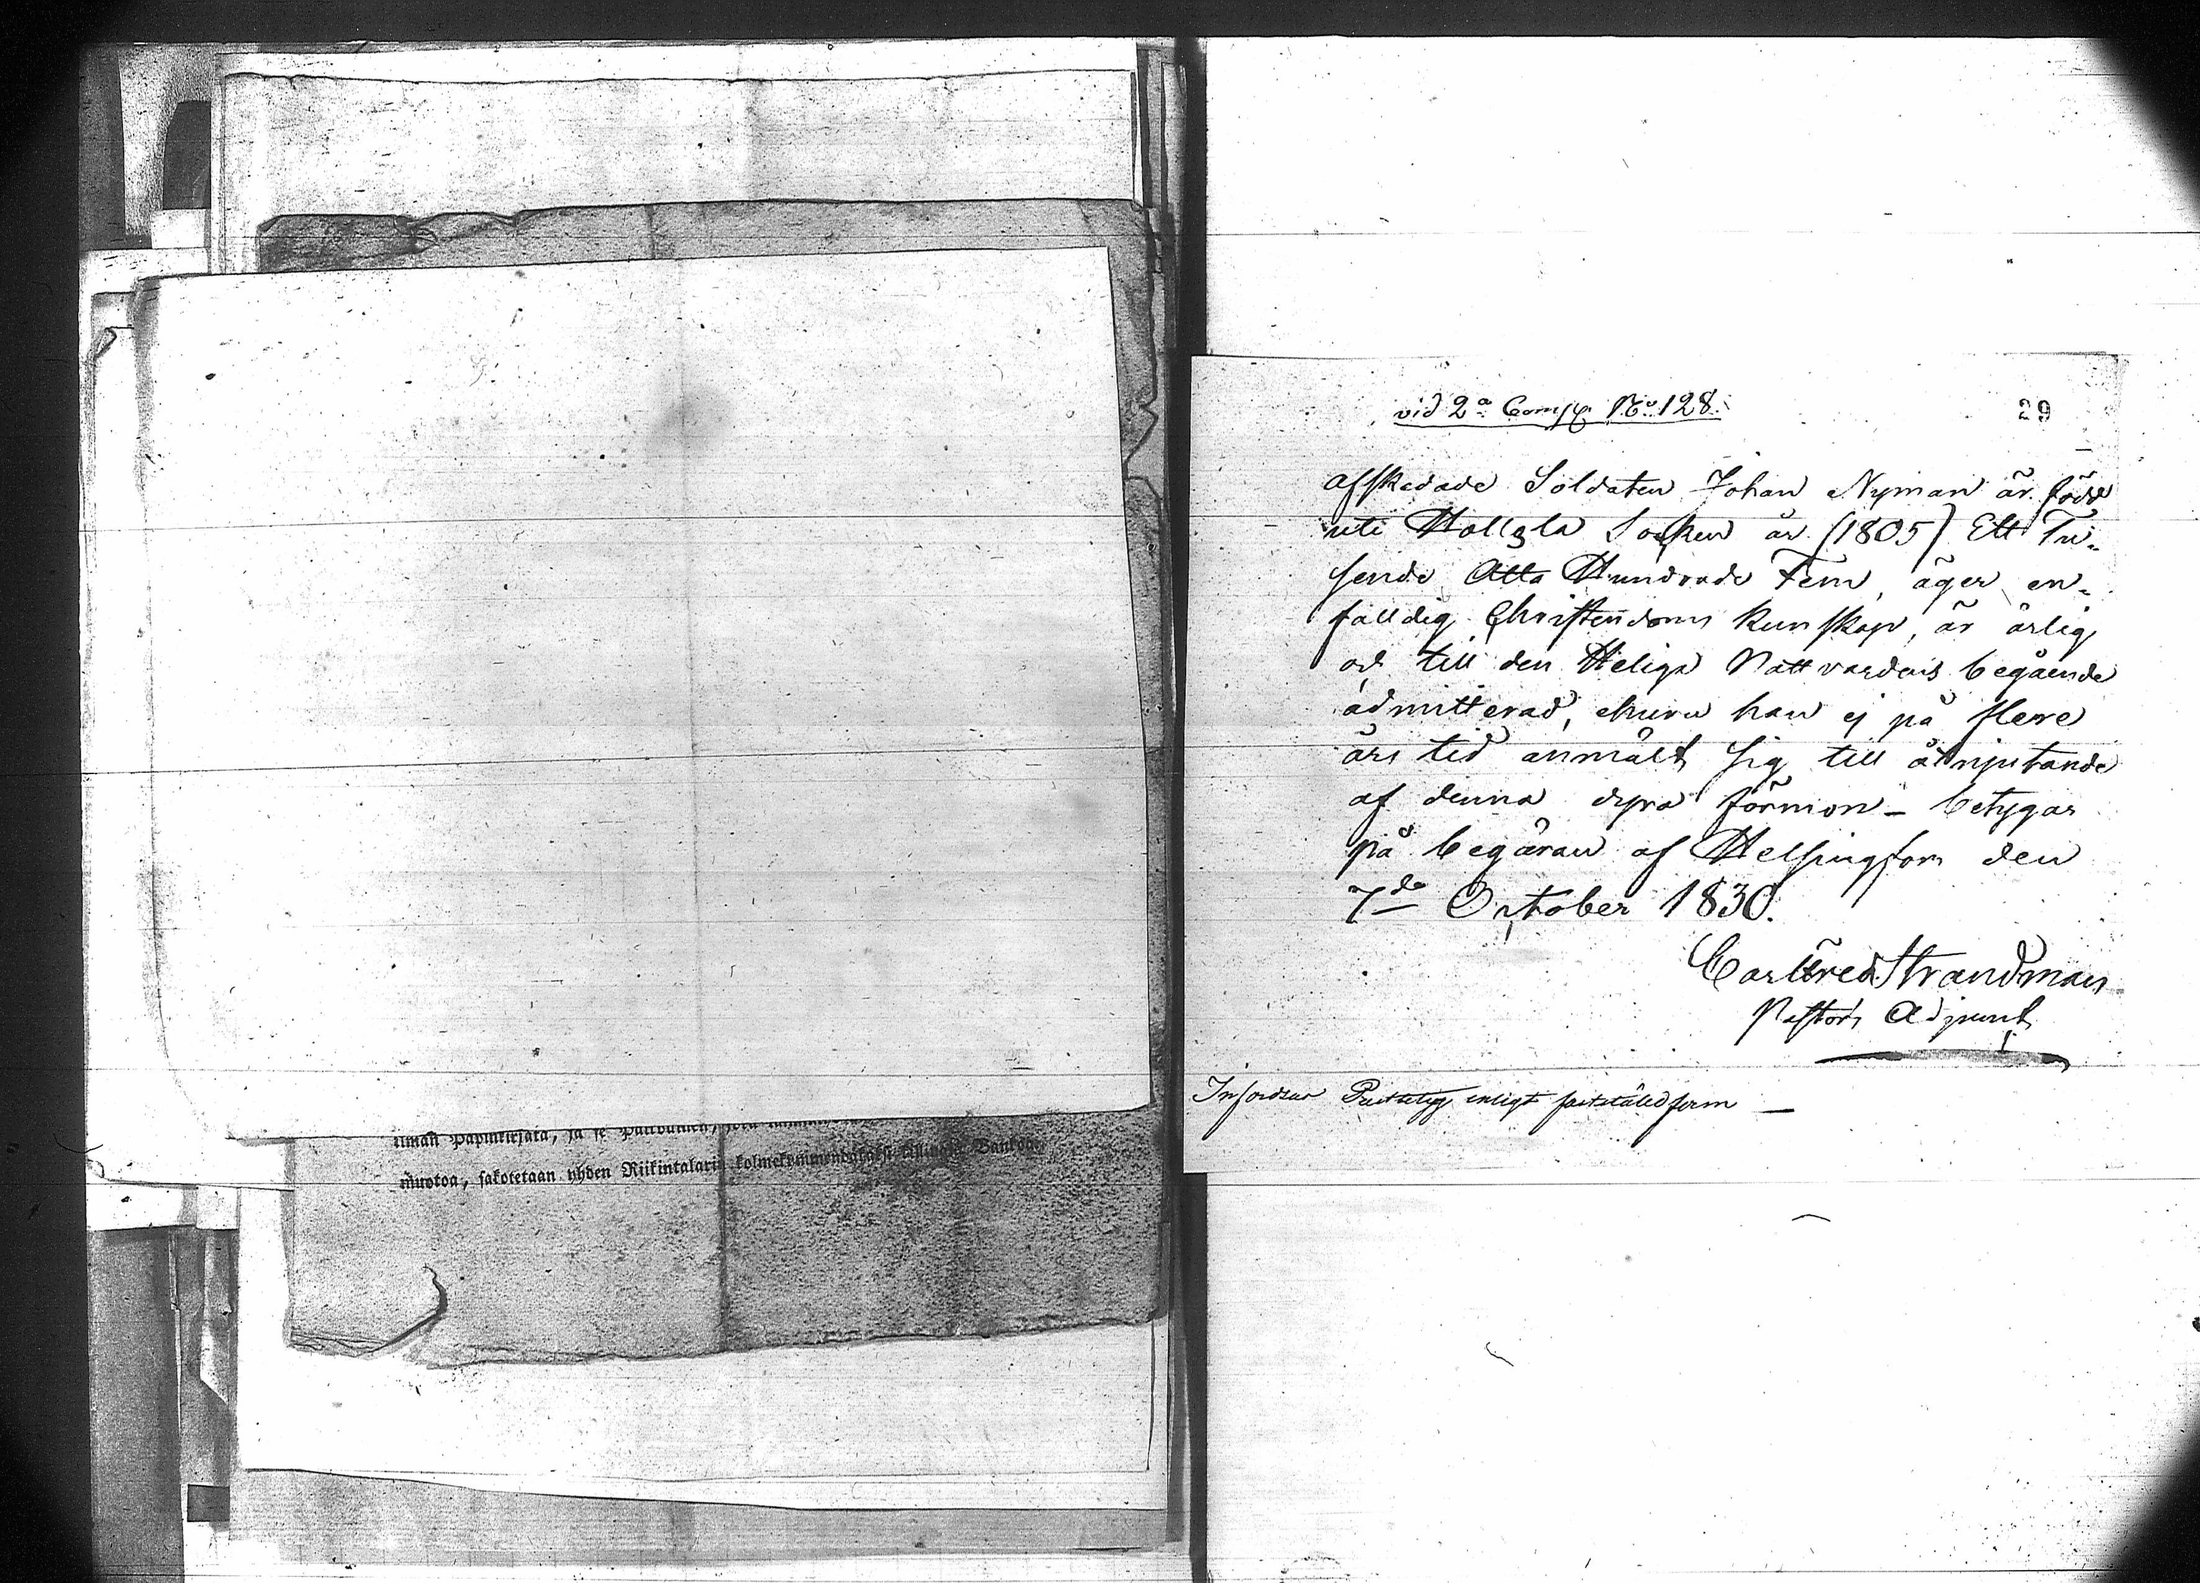 ilman Papinkirjata, ja se
muotoa, sakotetaan yhden Riikintalarin kolmekymmentäkaksi killingin Bankoa
vid 2a Comp. No 128.
29
afskedade Soldaten Johan Nyman är född
uti Hollola Socken år (1805) Ett Tu-
sende Åtta Hundrade Fem, äger en-
faldig Christendoms kunskap, är ärlig
och till den Heliga Nattvardens begående
admitterad, ehuru han ej på flere
års tid anmält sig till åtnjutande
af denna dyra förmon - betygar
på begäran af Helsingfors den
7de October 1830.
Carl Fred Strandman
Pastors Adjunct
Infordras Prestbetyg enligt fastställd form —